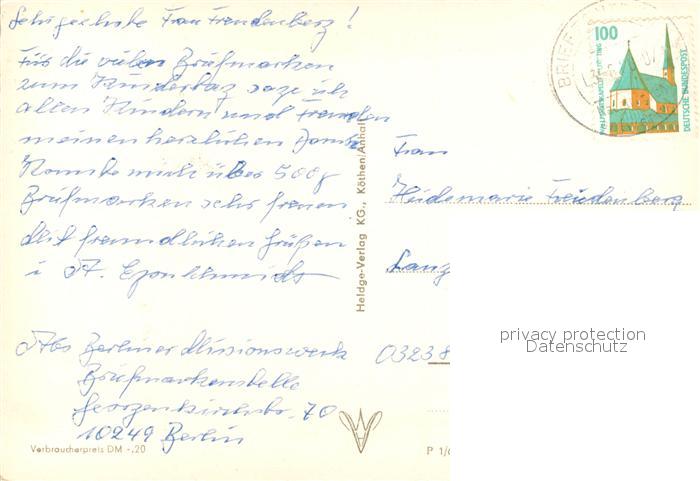 Sehr geehrte Frau Freudenberg!
Für die vielen Briefmarken
zum Kindertag sage ich
allen Kindern und Freunden
meinen herzlichen Dank.
Konnte mich über 500g
Briefmarken sehr freuen
Mit freundlichen Grüßen
i. A.
Abs Berliner Missionswerk
Briefmarkenstelle
Georgenkirchstr. 70
10249 Berlin
Verbraucherpreis DM -,20
Heldge-Verlag KG., Köthen/Anhalt
P 1/
BRIEF
100
ALTÖTTING
DEUTSCHE BUNDESPOST
Frau
Heidemarie Freudenberg
Lang
03238
privacy protection
Datenschutz